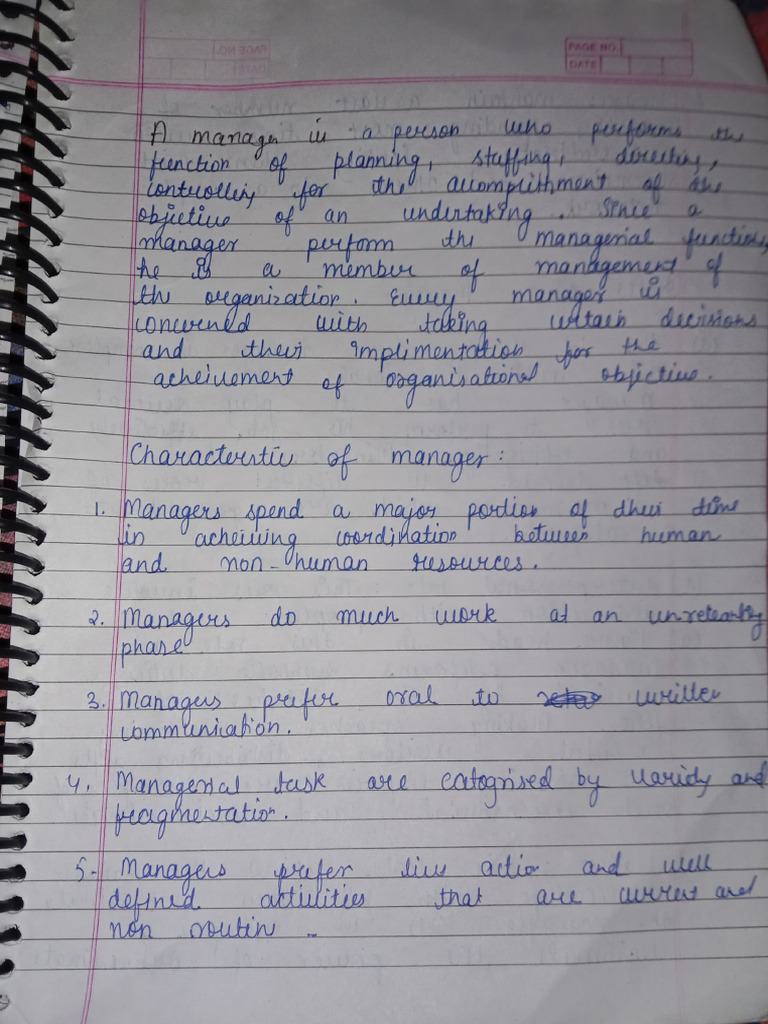 PAGE NO.
DATE
A manager is a person who performs the
function of planning, staffing, directing,
controlling for the accomplishment of the
objective of an undertaking. Since a
manager perform the managerial functions,
he is a member of management of
the organization. Every manager is
concerned with taking certain decisions
and their implimentation for the
acheivement of organisational objective.
Characterstic of manager:
1. Managers spend a major portion of their time
in acheiving coordination between human
and non-human resources.
2. Managers do much work at an unrelenting
phase
3. Managers prefer oral to written
communication.
4. Managerial task are catogrised by varidy and
fragmentation.
5- Managers prefer live action and well
defined activities that are current and
non routin ..